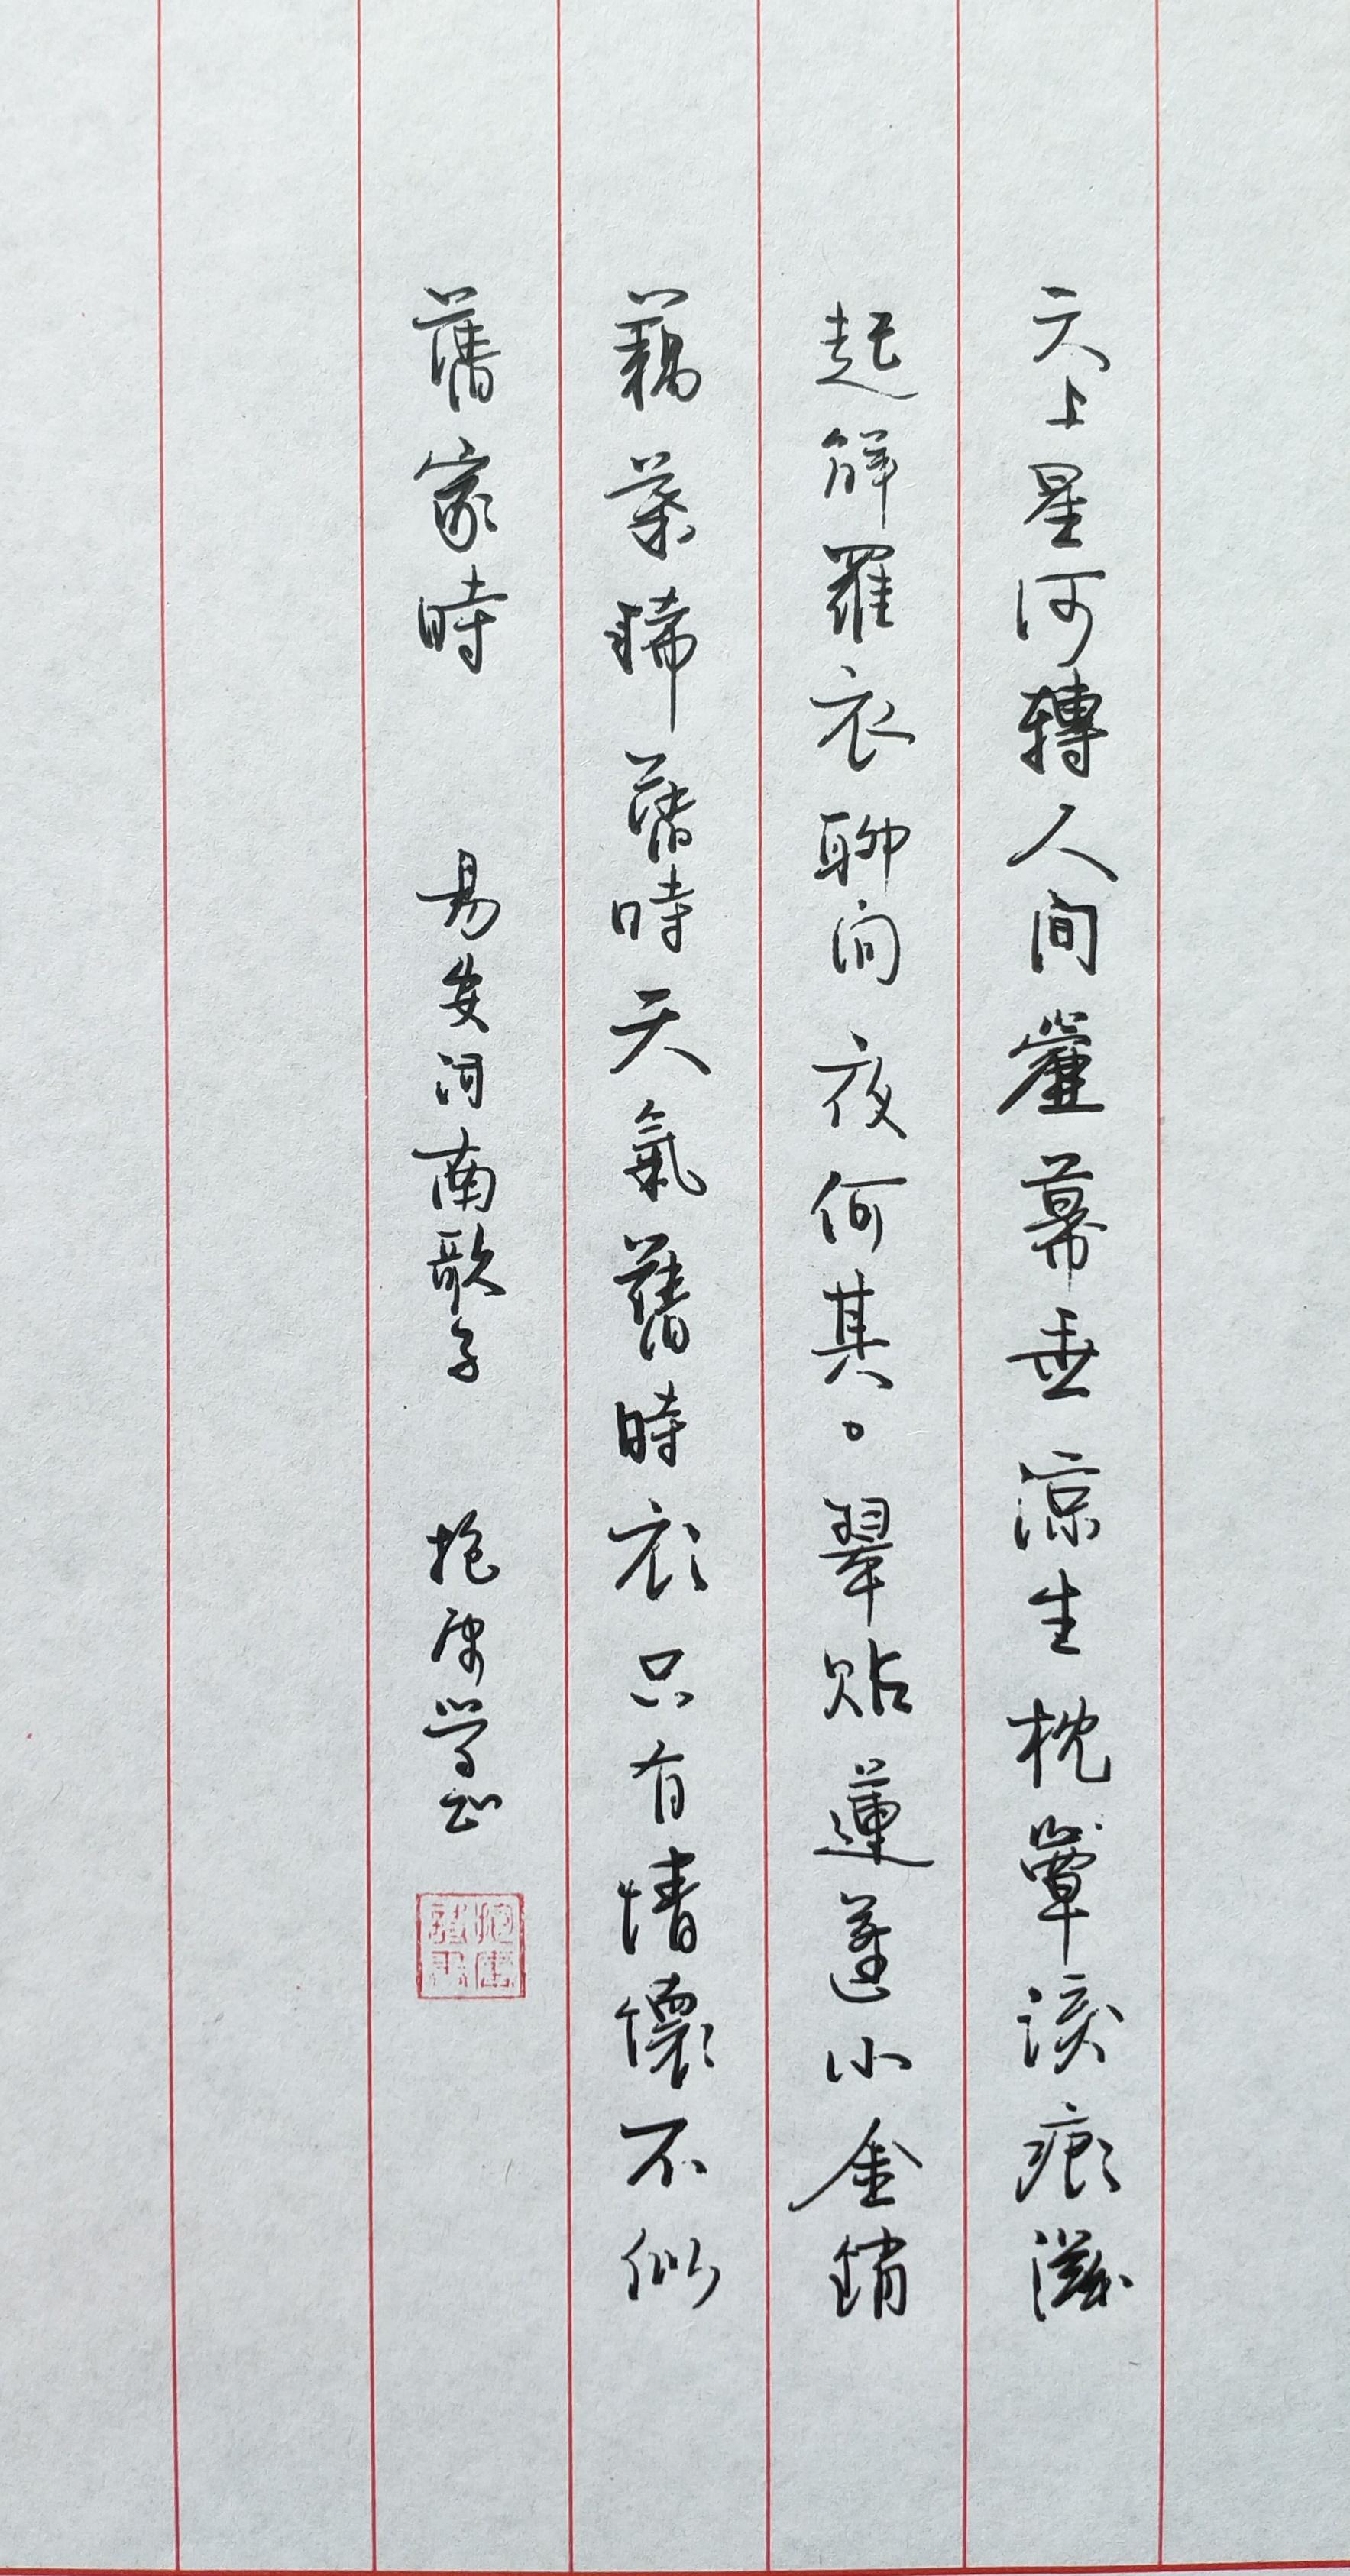 天上星河轉人间簾幕垂涼生枕簟淚痕滋
起解羅衣聊问夜何其。翠貼蓮蓬小金銷
藕葉稀舊時天氣舊時衣只有情懷不似
舊家時 易安词南歌子